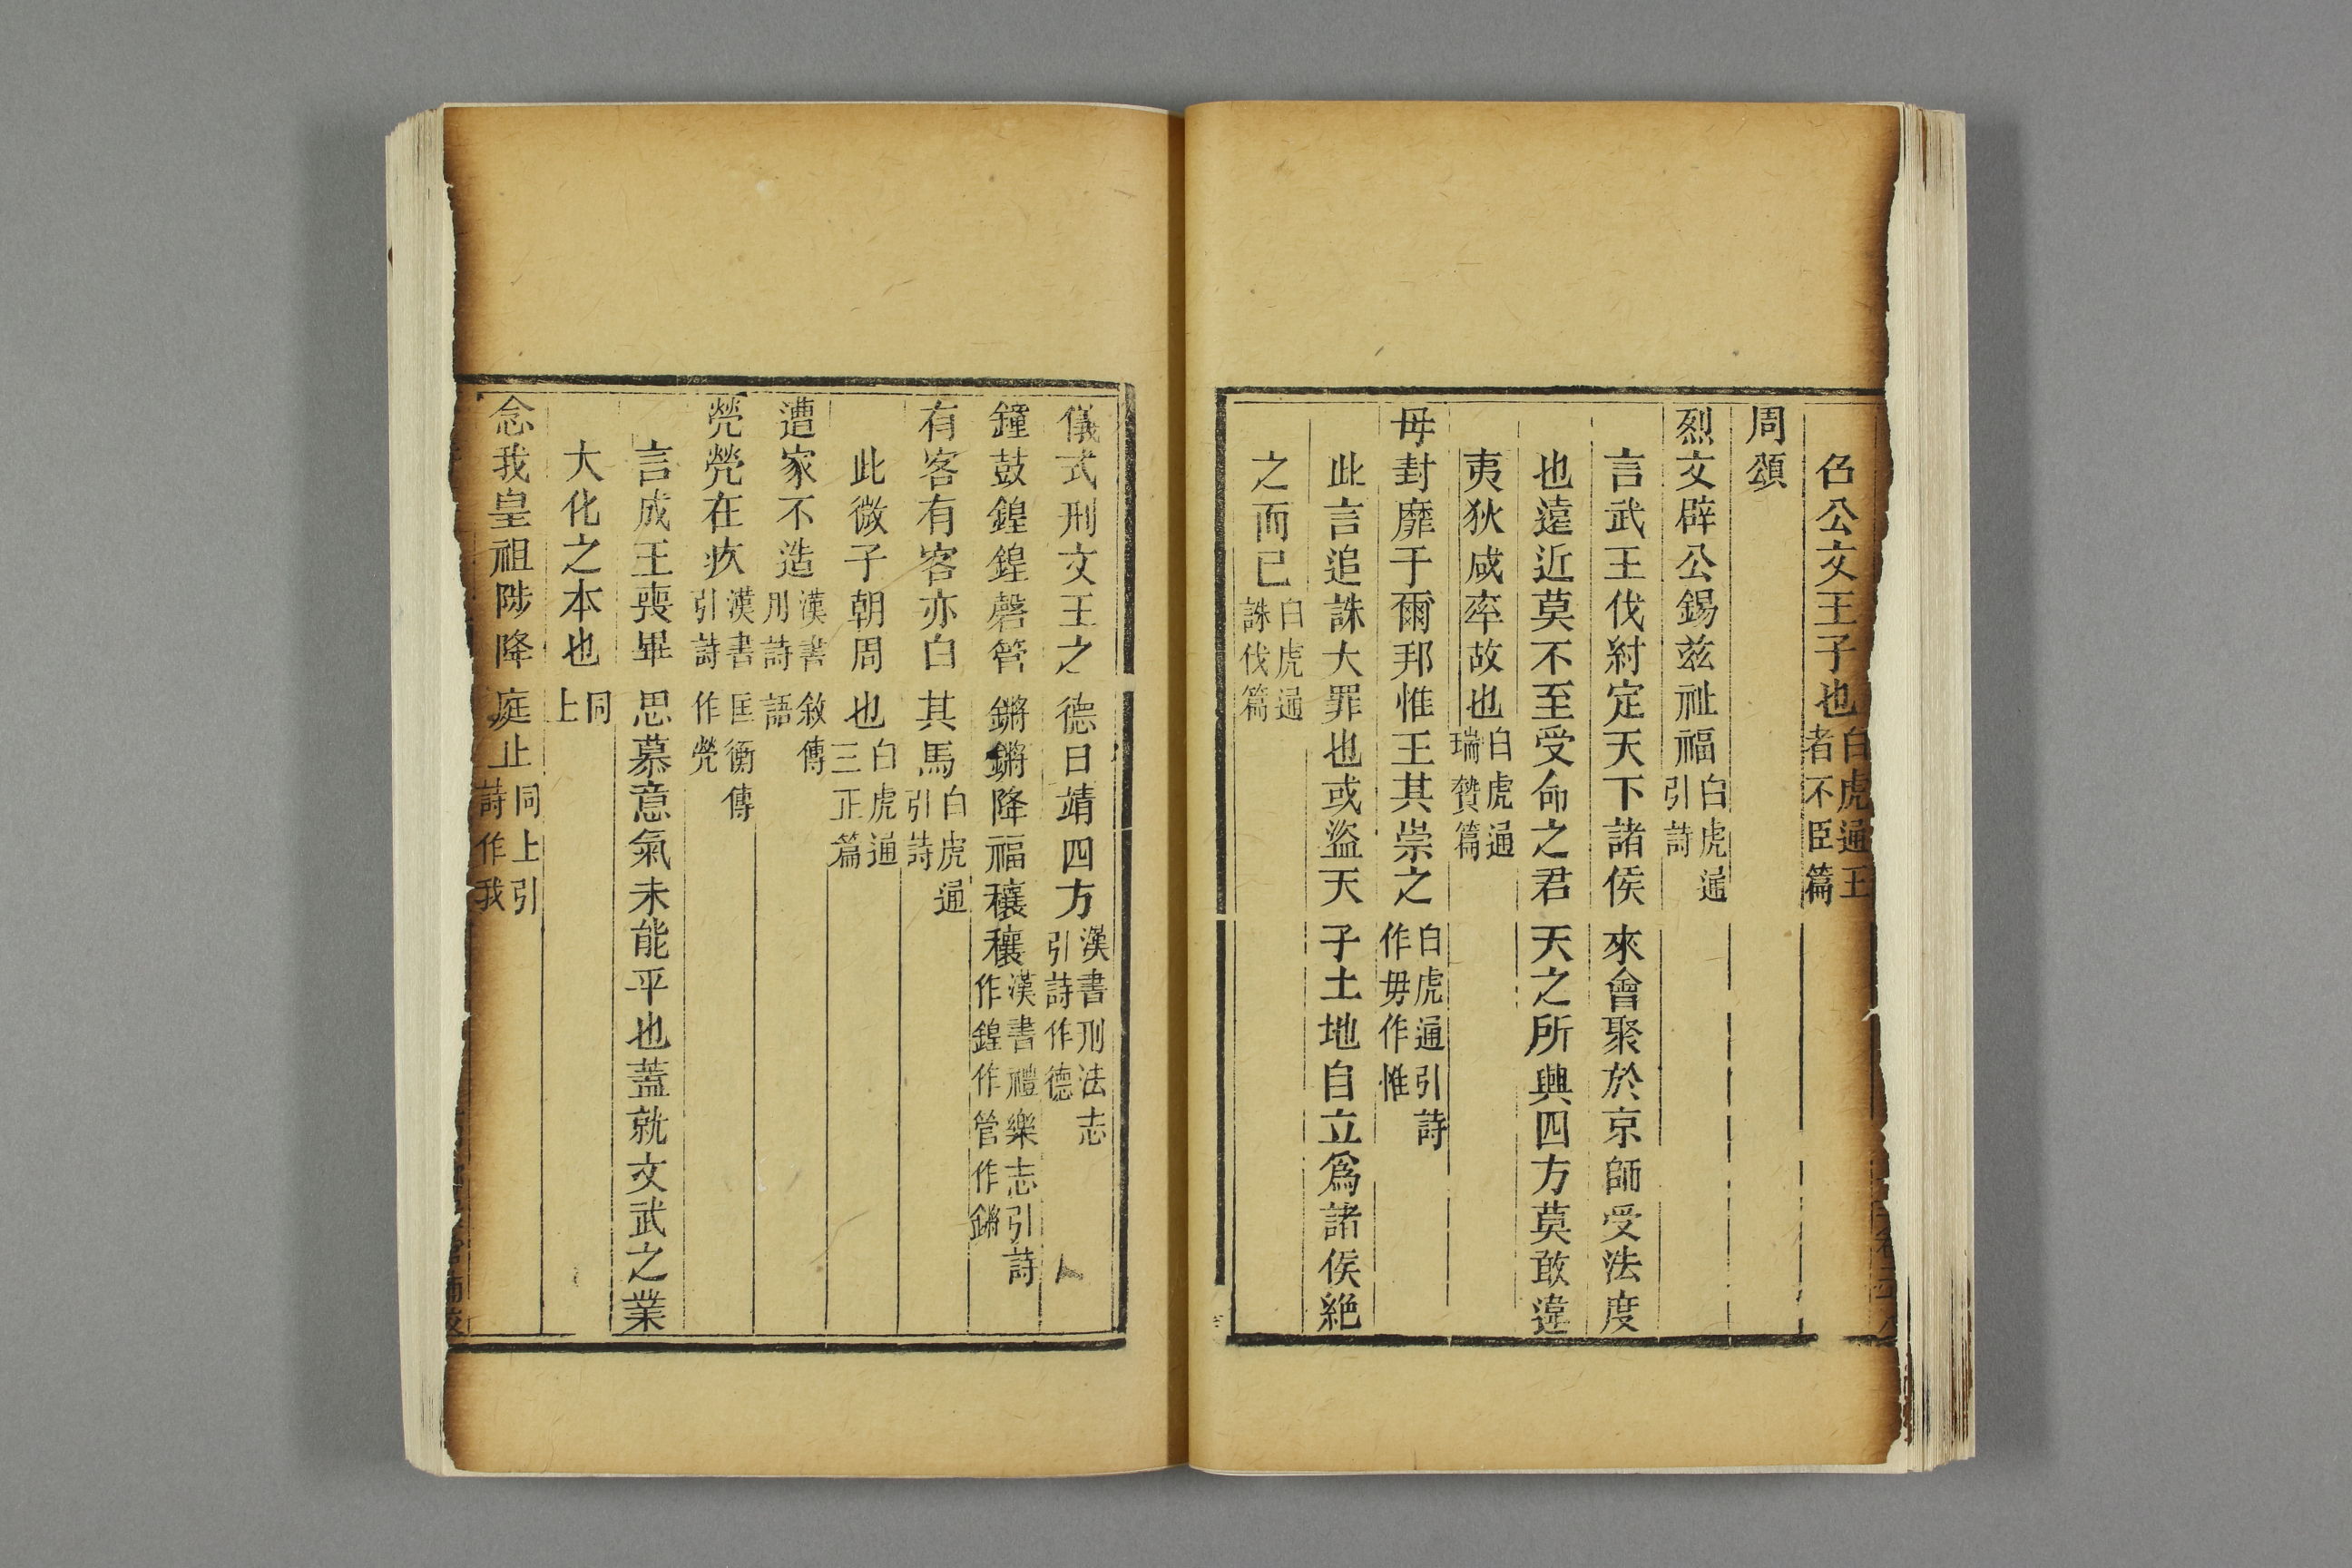 召公文王子也白虎通王者不臣篇
周頌
烈文辟公錫兹祉福白虎通引詩
言武王伐紂定天下諸侯來會聚於京師受法度
也遠近莫不至受命之君天之所興四方莫敢違
夷狄咸率故也白虎通瑞贄篇
毋封靡于爾邦惟王其崇之白虎通引詩作毋作惟
此言追誅大罪也或盜天子土地自立爲諸侯絶
之而已白虎通誅伐篇
儀式刑文王之德日靖四方漢書刑法志引詩作德
鐘鼓鍠鍠磬管鏘鏘降福穰穰漢書禮樂志引詩作鍠作管作鏘
有客有客亦白其馬白虎通引詩
此微子朝周也白虎通三正篇
遭家不造漢書敘傳用詩語
煢煢在疚漢書匡衡傳引詩作煢
言成王喪畢思慕意氣未能平也蓋就文武之業
大化之本也同上
念我皇祖陟降庭止同上引詩作我